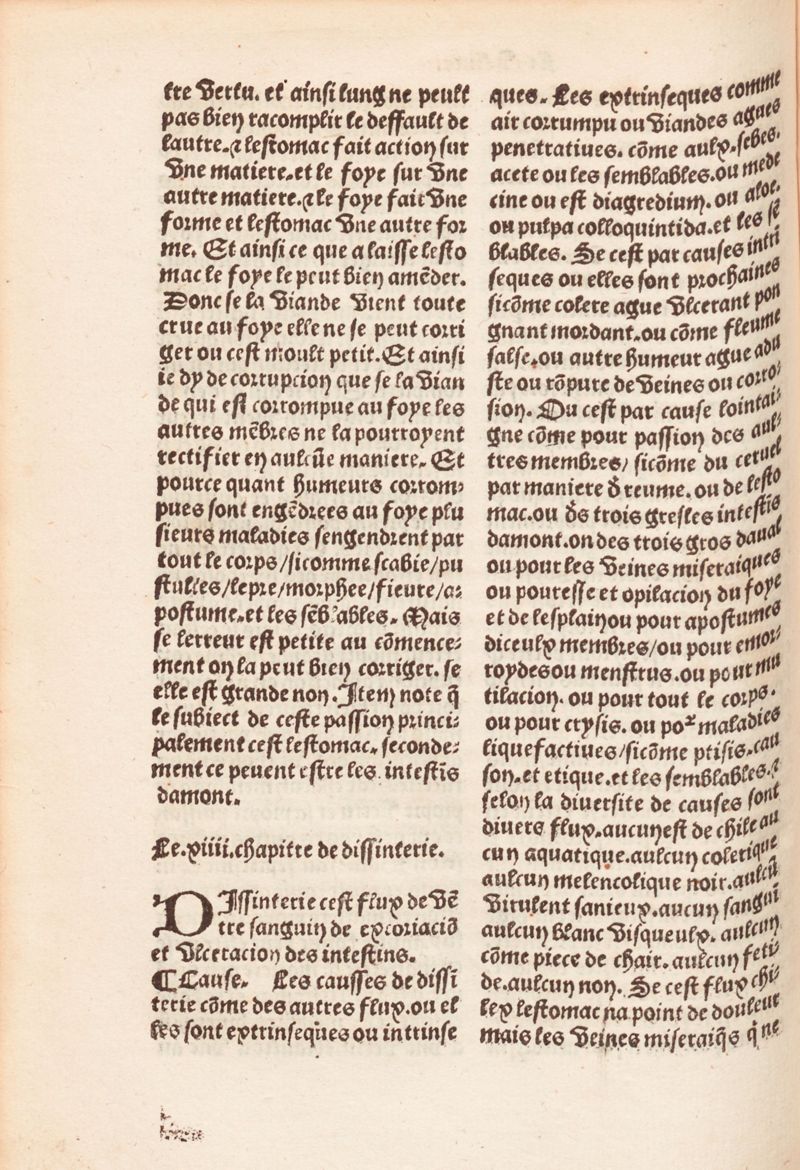 tre vertu. et ainsi lung ne peult
pas bien racomplir le deffault de
lautre. ⁊ lestomac fait action sur
vne matiere. et le foye sur vne
autre matiere. ⁊ le foye fait vne
forme et lestomac vne autre for
me. Et ainsi ce que a laisse lesto
mac le foye le peut bien amēder.
Donc se la viande vient toute
crue au foye elle ne se peut corri
ger ou cest moult petit. Et ainsi
ie dy de corrupcion que se la vian
de qui est corrompue au foye les
autres mēbres ne la pourroyent
rectifier en aulcūe maniere. Et
pource quant humeurs corrom⸗
pues sont engēdrees au foye plu
sieurs maladies sengendrent par
tout le corps/sicomme scabie/pu
stulles/lepre/morphee/fieure/a⸗
postume. et les sēblables. Mais
se lerreur est petite au cōmence⸗
ment on la peut bien corriger. se
elle est grande non. Item note q̄
le subiect de ceste passion princi⸗
palement cest lestomac. seconde⸗
ment ce peuent estre les intestīs
damont.
Le .xiiii. chapitre de dissinterie.
DIssinterie cest flux de vē
tre sanguin de excoriaciō
et vlceracion des intestins.
¶ Cause. Les causses de dissī
terie cōme des autres flux. ou el
les sont extrinseques ou intrinse
ques. Les extrinseques comme
air corrumpu ou viandes agues
penetratiues. cōme aulx. sebes.
acete ou les semblables. ou mede
cine ou est diagredium. ou aloe.
ou pulpa colloquintida. et les sē
blables. Se cest par causes intri
seques ou elles sont prochaines
sicōme colere ague vlcerant pon
gnant mordant. ou cōme fleume
salse. ou autre humeur ague adu
ste ou rōpure de veines ou corro⸗
sion. Ou cest par cause lointai⸗
gne cōme pour passion des aul⸗
tres membres/ sicōme du ceruel
par maniere d̄ reume. ou de lesto
mac. ou d̄s trois gresles intestīs
damont. on des trois gros daual
ou pour les veines miseraiques
ou pouresse et opilacion du foye
et de lesplain ou pour apostumes
diceulx membres/ou pour emor⸗
roydes ou menstrus. ou pour mu
tilacion. ou pour tout le corps.
ou pour crysis. ou poꝛ maladies
liquefactiues/sicōme ptisis. cau
son. et etique. et les semblables. ⁊
selon la diuersite de causes sont
diuers flux. aucun est de chile au
cun aquatique. aulcun colerique
aulcun melencolique noir. aulcū
virulent sanieux. aucun sangui
aulcun blanc visqueulx. aulcun
cōme piece de chair. aulcun feti⸗
de. aulcun non. Se cest flux chi⸗
lex lestomac na point de douleur
mais les veines miseraiq̄s q̄ ne